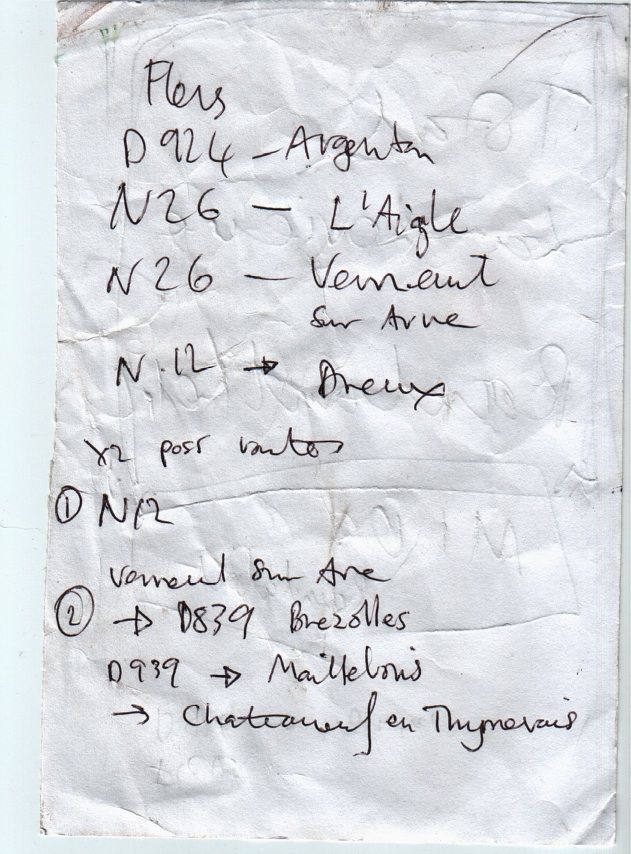 Flers
D924 - Argentan
N26 - L'Aigle
N26 - Verneuil
Sur Avre
N.12 → Dreux
x2 poss routes
① N12
Verneuil Sur Avre
② → D839 Brezolles
D939 → Maillebois
→ Chateauneuf en Thymerais